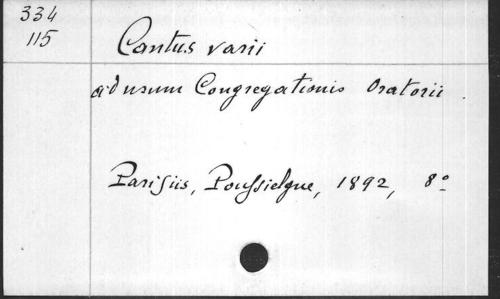 334
115
Cantus varii
ad usum Congregationis Oratorii
Parisiis, Poussielgue, 1892, 8º